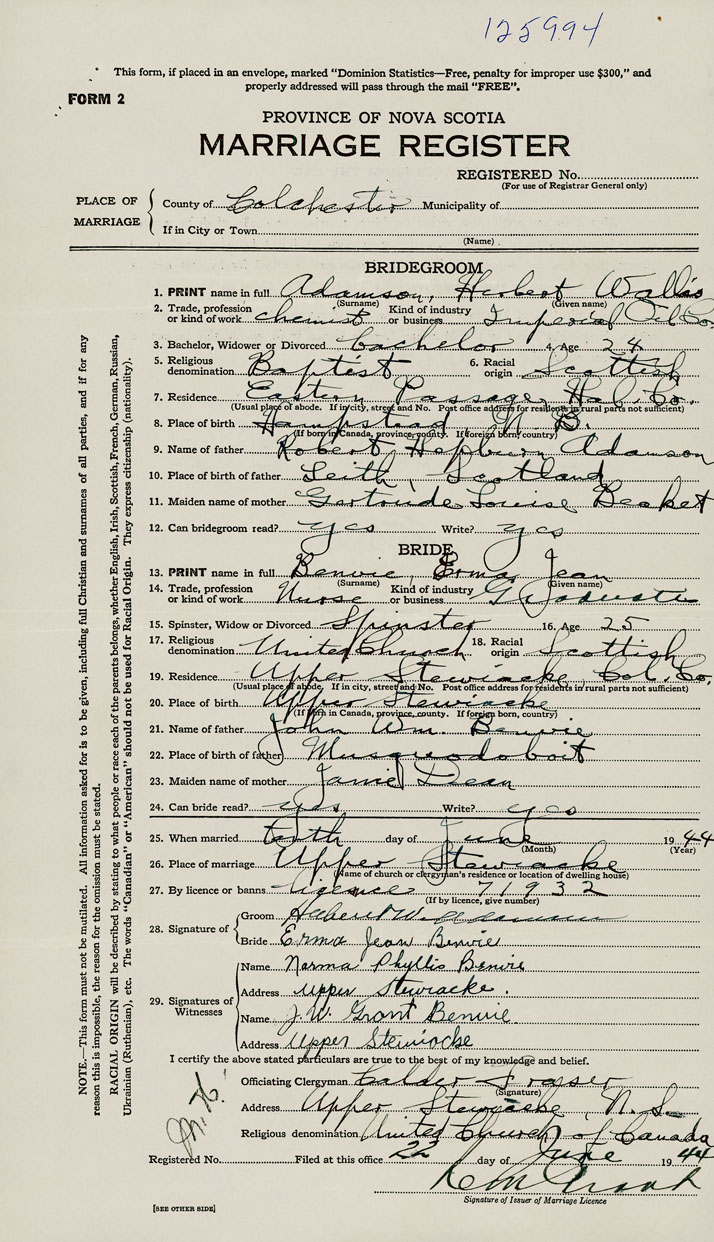 125994
This form, if placed in an envelope, marked "Dominion Statistics—Free, penalty for improper use $300," and
properly addressed will pass through the mail "FREE".
FORM 2
PROVINCE OF NOVA SCOTIA
MARRIAGE REGISTER
REGISTERED No.
(For use of Registrar General only)
PLACE OF MARRIAGE
County of Colchester Municipality of
If in City or Town
(Name)
BRIDEGROOM
1. PRINT name in full Adamson, Herbert Wallis
(Surname) (Given name)
2. Trade, profession or kind of work chemist Kind of industry or business Imperial Oil Co.
3. Bachelor, Widower or Divorced bachelor 4. Age 24
5. Religious denomination Baptist 6. Racial origin Scottish
7. Residence Eastern Passage, Hal. Co.
(Usual place of abode. If in city, street and No. Post office address for residents in rural parts not sufficient)
8. Place of birth Hampstead N. B.
(If born in Canada, province, county. If foreign born, country)
9. Name of father Robert Hepburn Adamson
10. Place of birth of father Leith, Scotland
11. Maiden name of mother Gertrude Louise
12. Can bridegroom read? yes Write? yes
BRIDE
13. PRINT name in full Benvie, Erma Jean
(Surname) (Given name)
14. Trade, profession or kind of work Nurse Kind of industry or business Graduate
15. Spinster, Widow or Divorced Spinster 16. Age 25
17. Religious denomination United Church 18. Racial origin Scottish
19. Residence Upper Stewiacke, Col. Co.
(Usual place of abode. If in city, street and No. Post office address for residents in rural parts not sufficient)
20. Place of birth Upper Stewiacke
(If born in Canada, province, county. If foreign born, country)
21. Name of father John Wm. Benvie
22. Place of birth of father Musquodoboit
23. Maiden name of mother Dean
24. Can bride read? yes Write? yes
25. When married tenth day of June 1944
(Month) (Year)
26. Place of marriage Upper Stewiacke
(Name of church or clergyman's residence or location of dwelling house)
27. By licence or banns licence 71932
(If by licence, give number)
28. Signature of
Groom Herbert W. Adamson
Bride Erma Jean Benvie
29. Signatures of Witnesses
Name Norma Phyllis Benvie
Address Upper Stewiacke.
Name J. W. Grant Benvie
Address Upper Stewiacke
I certify the above stated particulars are true to the best of my knowledge and belief.
Officiating Clergyman Calder Fraser
(Signature)
Address Upper Stewiacke, N. S.
Religious denomination United Church of Canada
Registered No. Filed at this office 22 day of June 1944
Signature of Issuer of Marriage Licence
[SEE OTHER SIDE]
NOTE.—This form must not be mutilated. All information asked for is to be given, including full Christian and surnames of all parties, and if for any
reason this is impossible, the reason for the omission must be stated.
RACIAL ORIGIN will be described by stating to what people or race each of the parents belongs, whether English, Irish, Scottish, French, German, Russian,
Ukrainian (Ruthenian), etc. The words "Canadian" or "American" should not be used for Racial Origin. They express citizenship (nationality).